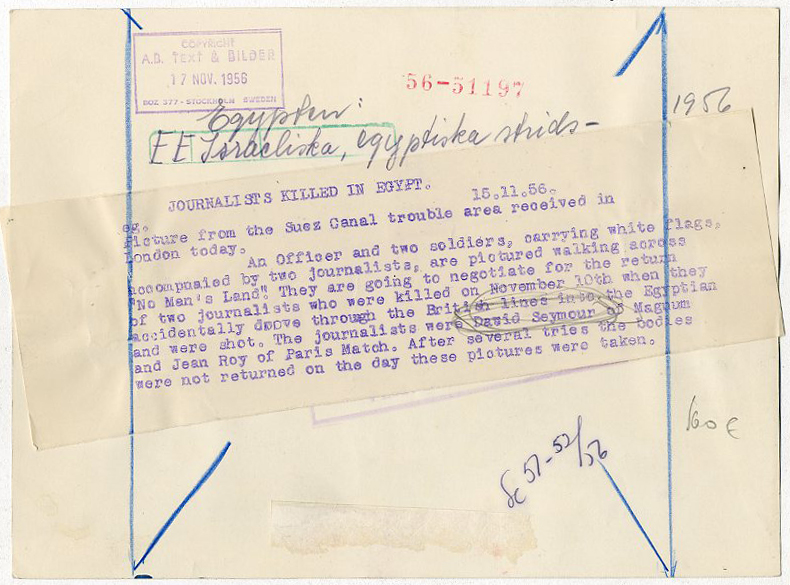 COPYRIGHT
A.B. TEXT & BILDER
17 NOV. 1956
BOX 377 - STOCKHOLM SWEDEN
56-51197
1956
Egypten:
EE Israeliska, egyptiska strids-
JOURNALISTS KILLED IN EGYPT. 15.11.56.
eg.
Picture from the Suez Canal trouble area received in
London today.
An Officer and two soldiers, carrying white flags,
accompnaied by two journalists, are pictured walking across
"No Man's Land". They are going to negotiate for the return
of two journalists who were killed on November 10th when they
accidentally doove through the British lines into the Egyptian
and were shot. The journalists were David Seymour of Magnum
and Jean Roy of Paris Match. After several tries the bodies
were not returned on the day these pictures were taken.
160 €
51-52/56